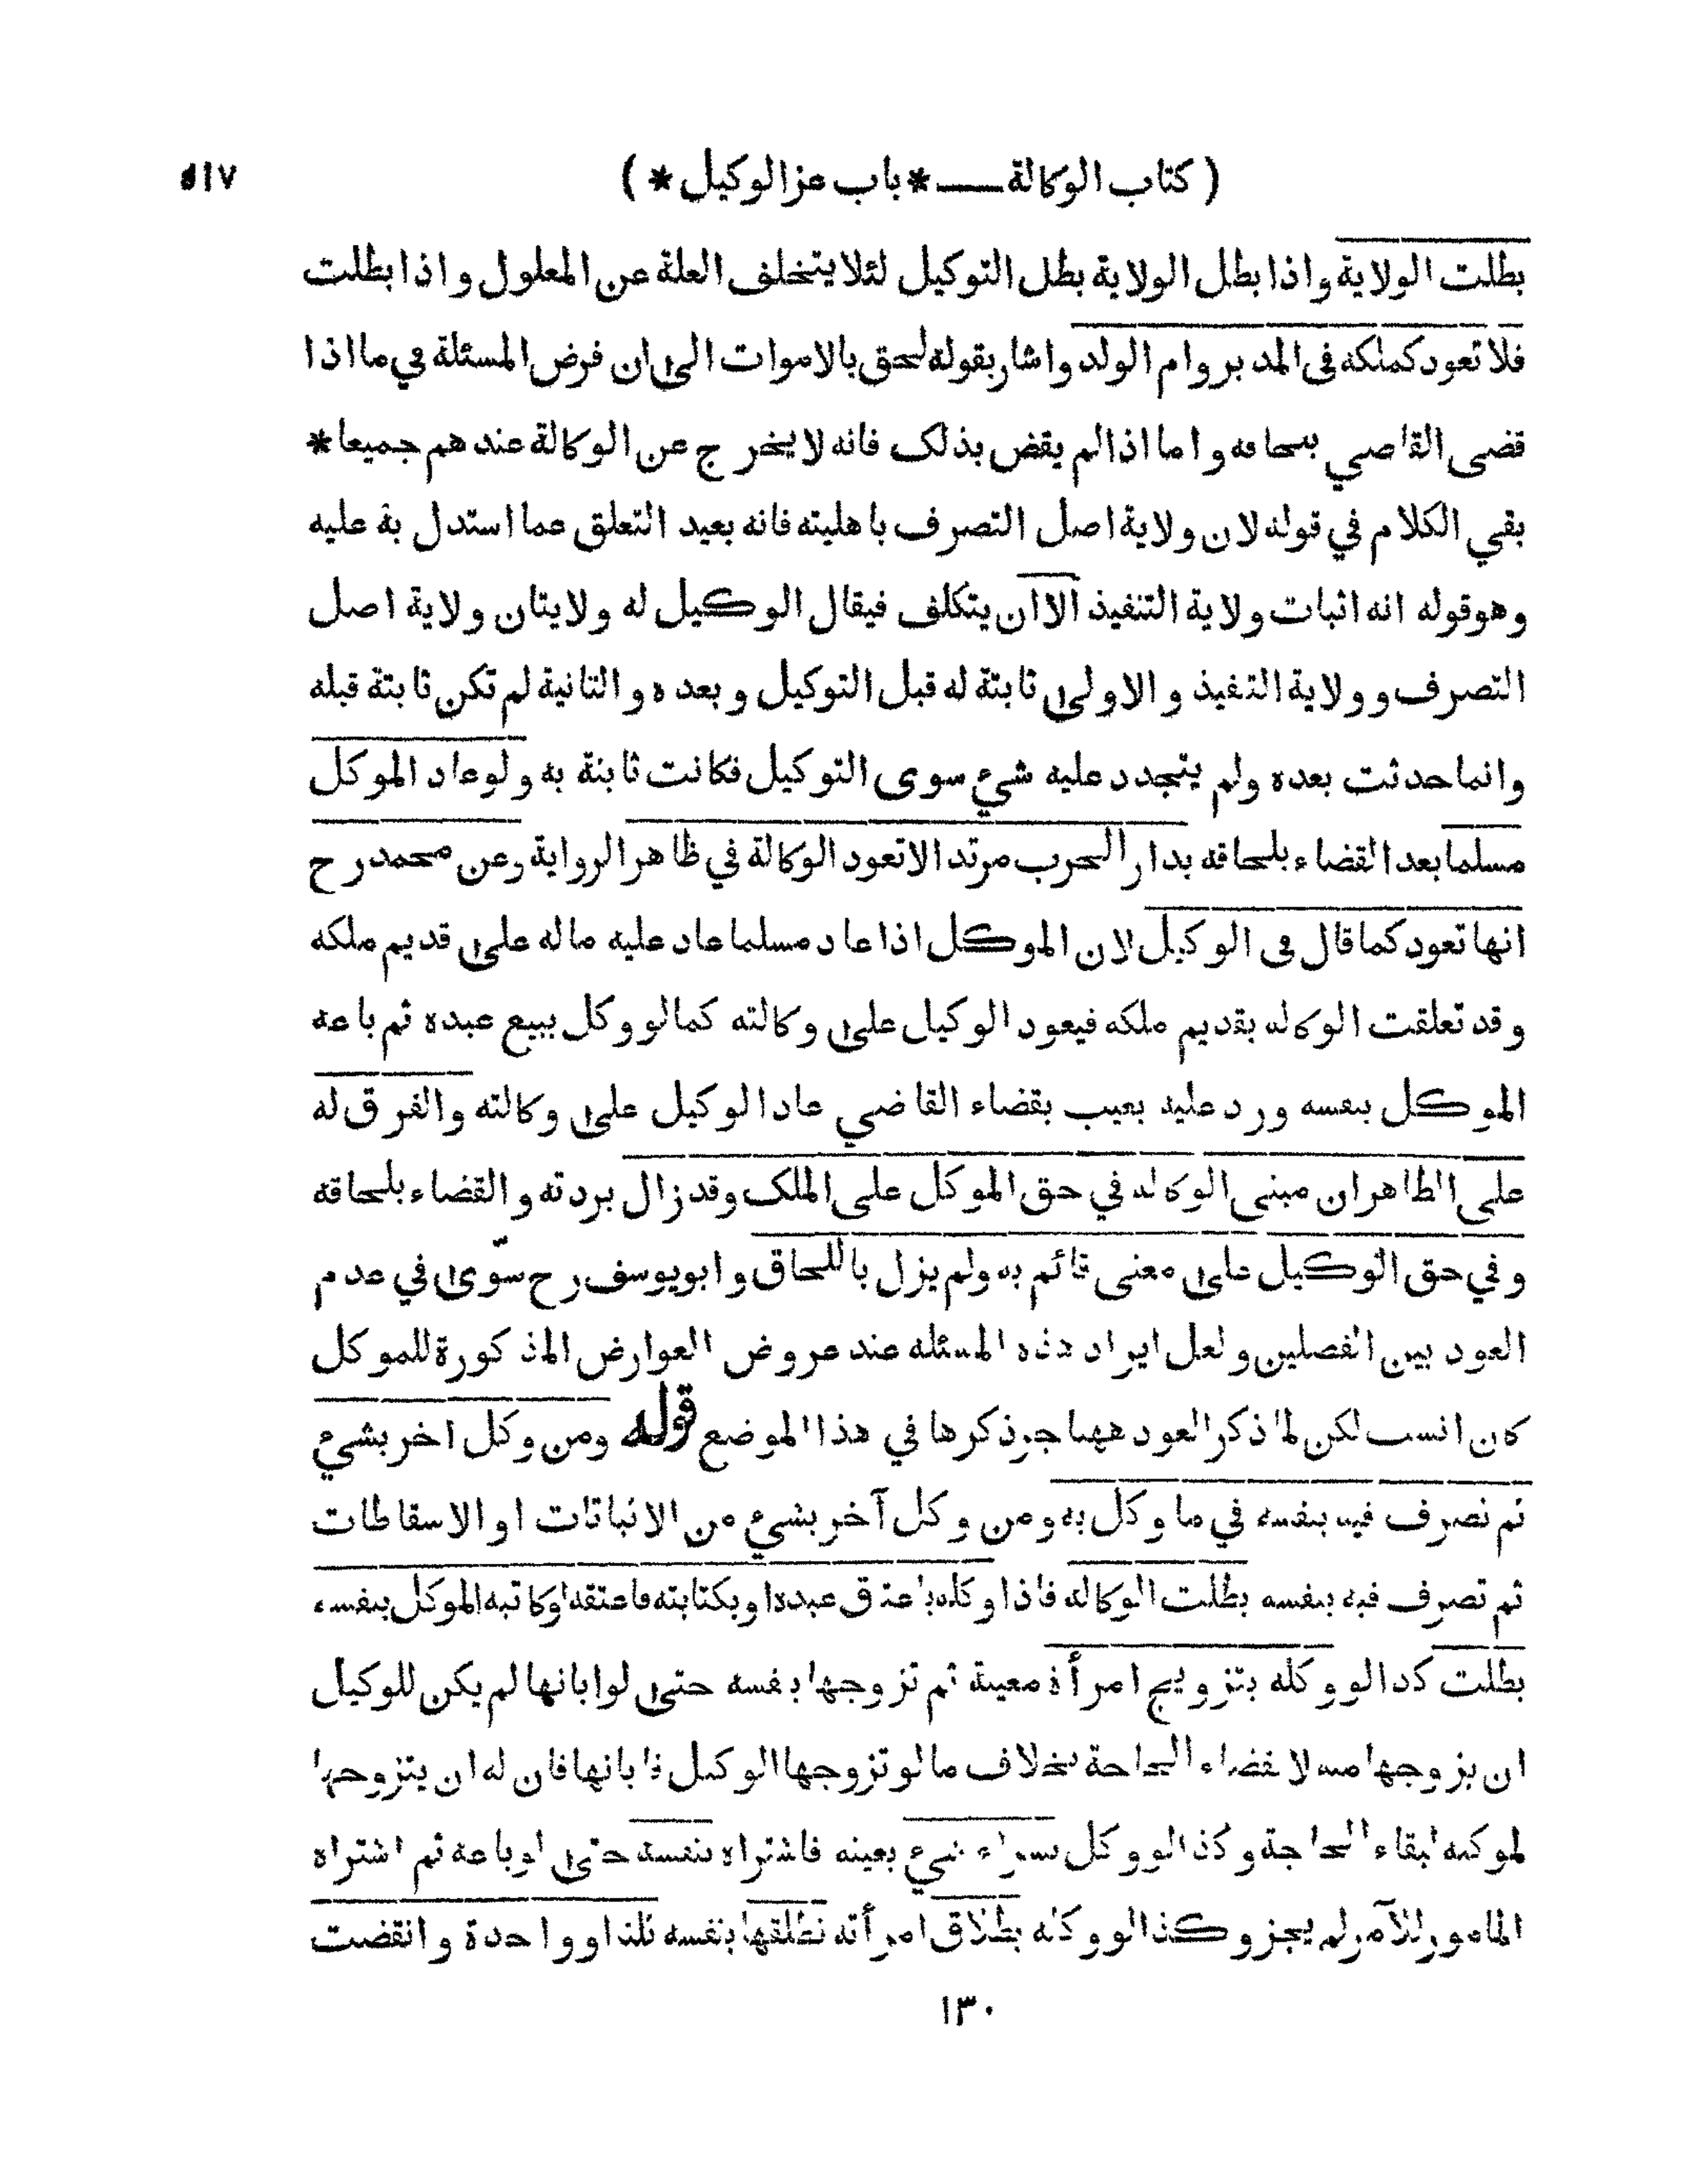 ( كتاب الوكالة ـــ * باب عزالوكيل * ) ٥١٧
بطلت الولاية واذا بطل الولاية بطل التوكيل لئلا يتخلف العلة عن المعلول واذا بطلت
فلا تعود كملكه فى المدبر وام الولد واشار بقوله لحق بالاموات الى ان فرض المسئلة في ما اذا
قضى القاضي بلحاقه واما اذا لم يقض بذلك فانه لا يخرج عن الوكالة عندهم جميعا *
بقي الكلام في قوله لان ولاية اصل التصرف باهليته فانه بعيد التعلق عما استدل به عليه
وهو قوله انه اثبات ولاية التنفيذ الا ان يتكلف فيقال الوكيل له ولايتان ولاية اصل
التصرف وولاية التنفيذ والاولى ثابتة له قبل التوكيل وبعده والثانية لم تكن ثابتة قبله
وانما حدثت بعده ولم يتجدد عليه شيء سوى التوكيل فكانت ثابتة به ولو عاد الموكل
مسلما بعد القضاء بلحاقه بدار الحرب مرتدا لا تعود الوكالة في ظاهر الرواية وعن محمد رح
انها تعود كما قال فى الوكيل لان الموكل اذا عاد مسلما عاد عليه ماله على قديم ملكه
وقد تعلقت الوكالة بقديم ملكه فيعود الوكيل على وكالته كما لو وكل ببيع عبده ثم باعه
الموكل بنفسه ورد عليه بعيب بقضاء القاضي عاد الوكيل على وكالته والفرق له
على الظاهر ان مبنى الوكالة في حق الموكل على الملك وقد زال بردته والقضاء بلحاقه
وفي حق الوكيل على معنى قائم به ولم يزل باللحاق وابويوسف رح سوّى في عدم
العود بين الفصلين ولعل ايراد هذه المسئله عند عروض العوارض المذكورة للموكل
كان انسب لكن لما ذكر العود ههنا جر ذكرها في هذا الموضع قوله ومن وكل اخر بشيء
ثم تصرف فيه بنفسه في ما وكل به ومن وكل آخر بشيء من الاثباتات او الاسقاطات
ثم تصرف فيه بنفسه بطلت الوكالة فاذا وكله باعتاق عبده او بكتابته فاعتقه او كاتبه الموكل بنفسه
بطلت كذا لو وكله بتزويج امرأة معينة ثم تزوجها بنفسه حتى لو ابانها لم يكن للوكيل
ان يزوجها منه لانقضاء الحاجة بخلاف ما لو تزوجها الوكيل فابانها فان له ان يتزوجها
لموكله لبقاء الحاجة وكذا لو وكل بشراء شيء بعينه فاشتراه بنفسه حتى لو باعه ثم اشتراه
المامور للآمر لم يجز وكذا لو وكله بطلاق امرأته فطلقها بنفسه ثلثا او واحدة وانقضت
١٣٠